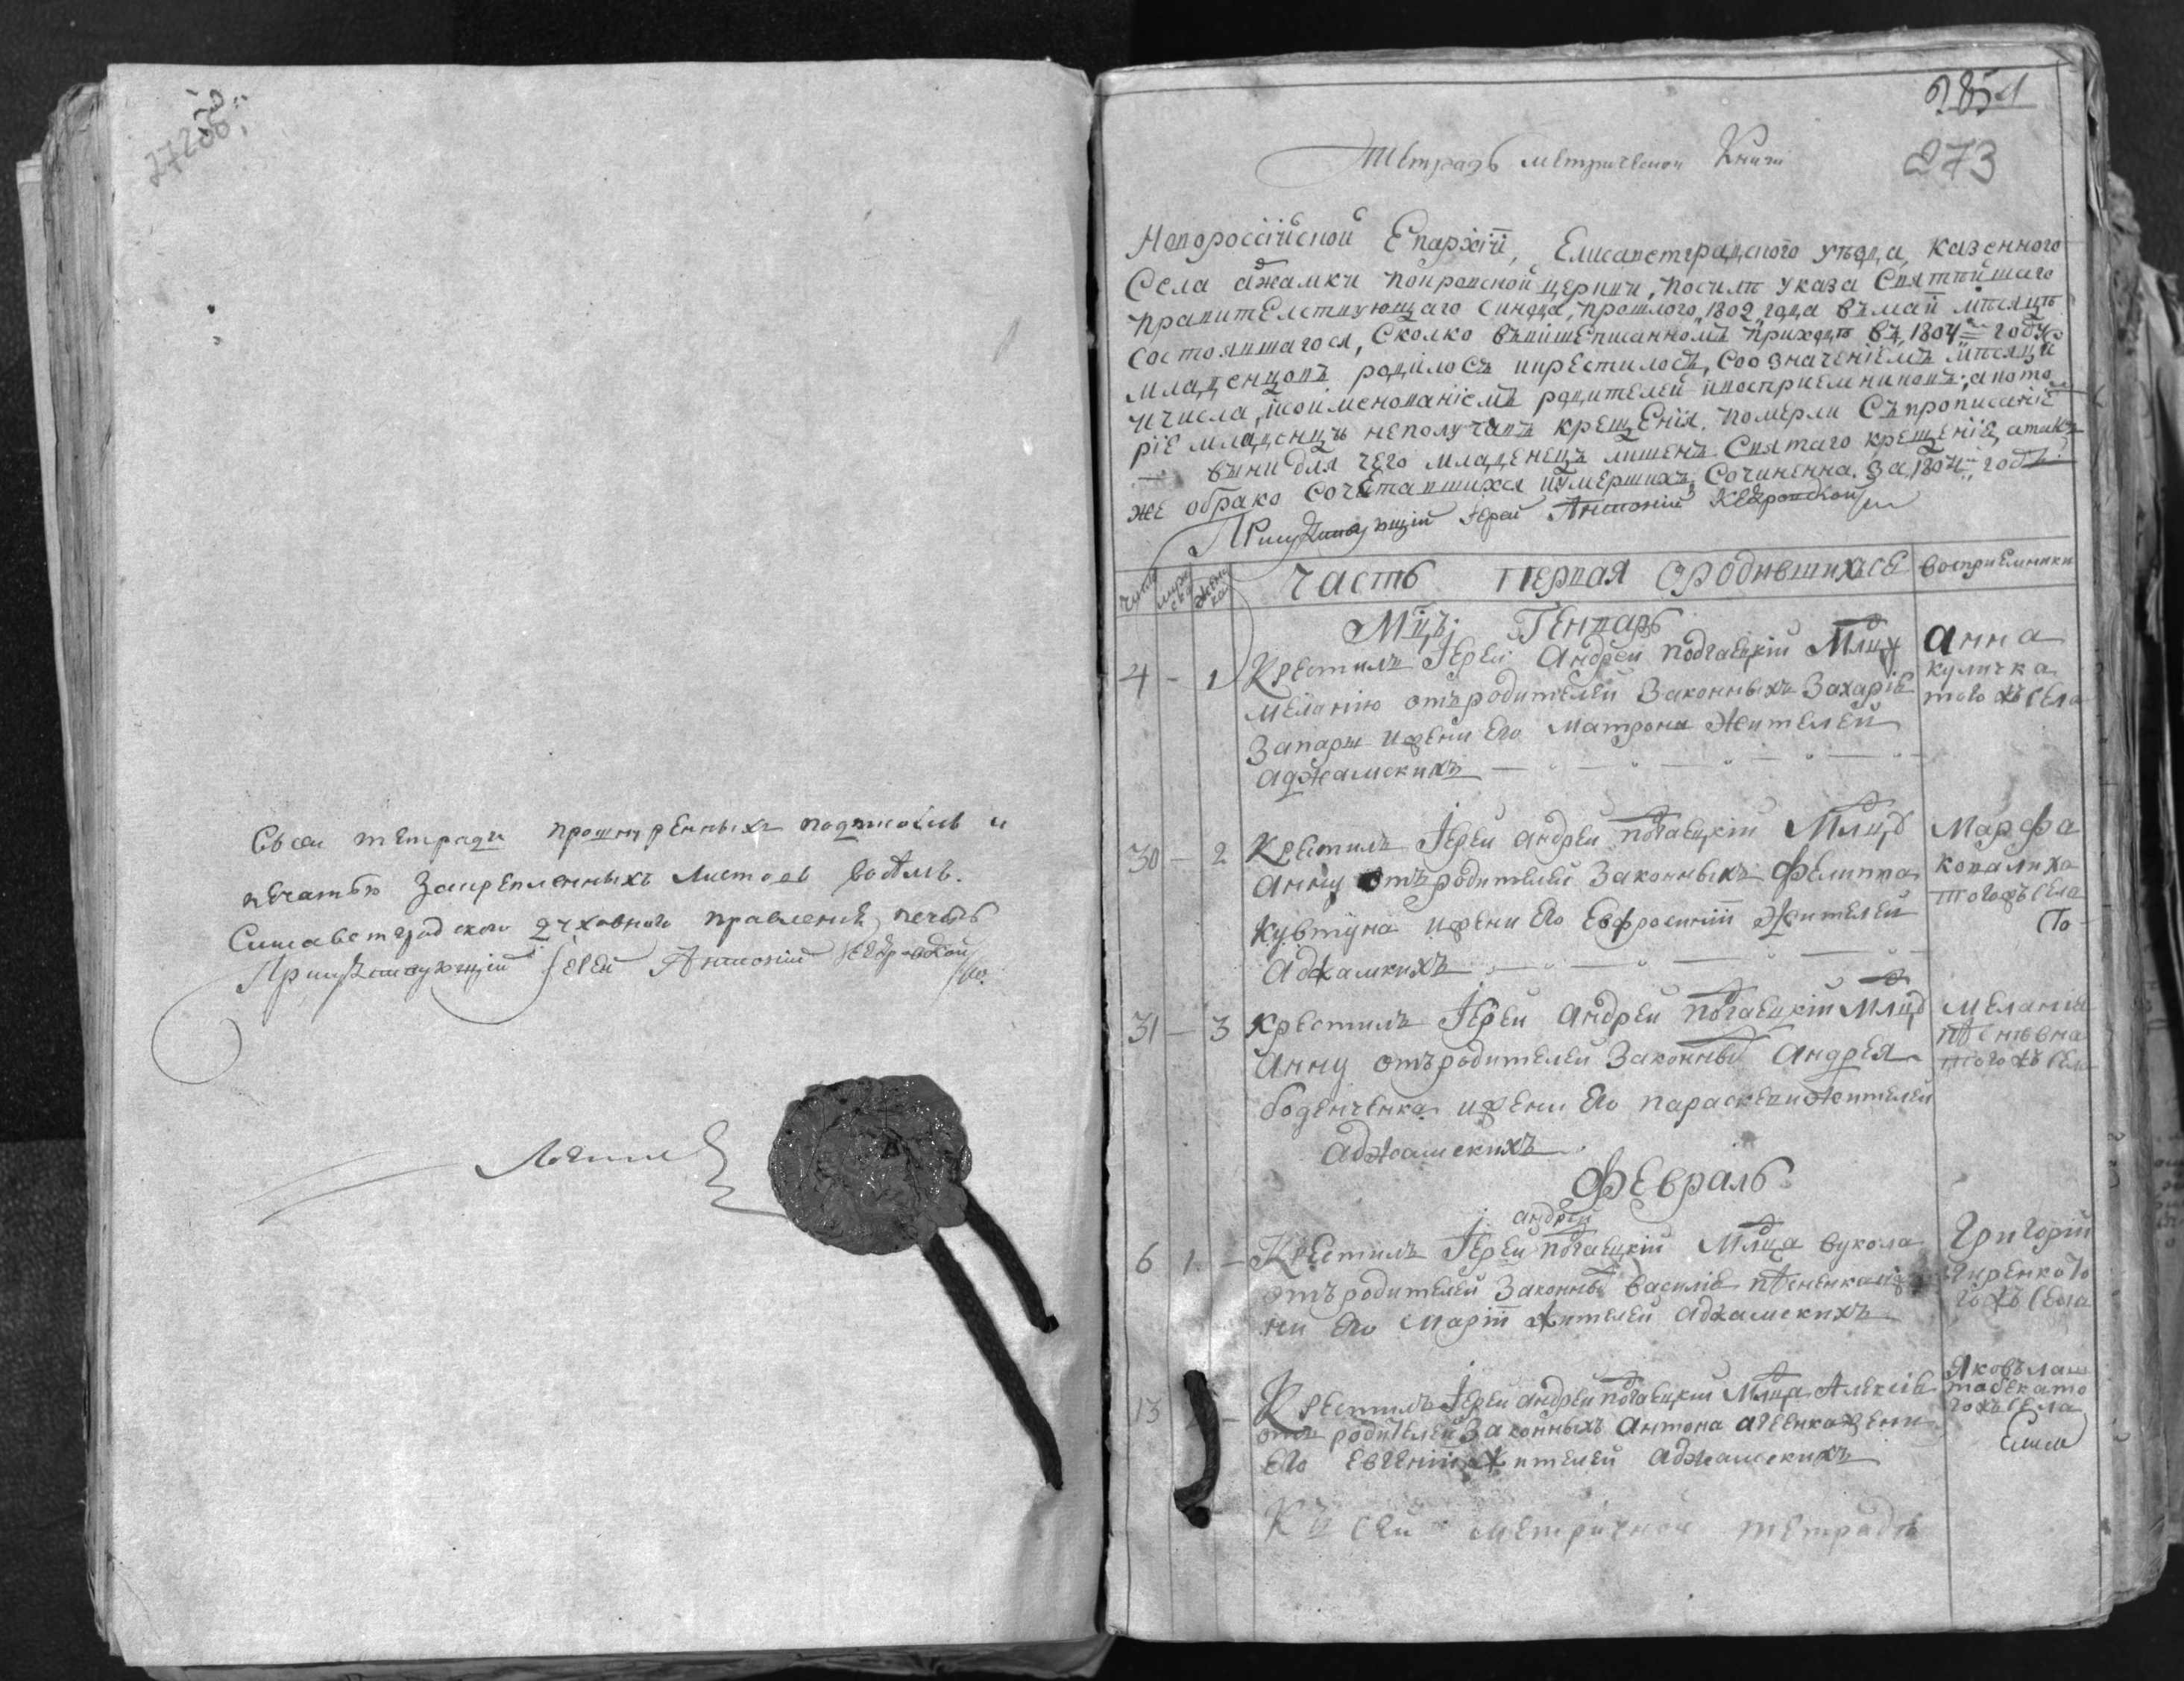 Всеи тетради прошнуренныхъ подписью и
печатью закрепленныхъ листовъ
Елисаветградского духовного правления печать
Присудствующій Іерей Антоній Кедровской
2851
273
Тетрадь метрической Книги
Новороссійской Епархіи, Елисаветградского уезда, казенного
Села аджамки покровской церкви, посиле указа Святейшаго
правителствующаго синода, прошлого, 1802 года въ маи месяце
состоявшагося, Сколко въвышеписанномъ приходе въ 1804 годе
младенцовъ родилось икрестилось, Соозначеніемъ месяца
ичисла, исоименованіемъ родителей ивосприемниковъ; акото
ріе младенцы неполучавъ крещенія, померли Съпрописаніе
выни для чего младенецъ лишенъ Святаго крещенія, атакъ
же обрако Сочетавшихся иумершихъ, Сочиненна. За 1804 годъ.
Присудствующій Іерей Антоній Кедровской
число муже ска женс ка Часть первая ородившихсе восприемники
Мцъ Генварь
4 - 1 Крестилъ Іерей Андрей подгаецкій Млцу
меланію отъродителей Законныхъ Захаріе
Запары ижени Его Матрона Жителей
аджамскихъ
анна
куличка
того жъ села
30 - 2 Крестилъ Іерей андрей погаецкій Млцъ
анну отъродителей Законныхъ Филиппа
Кувтуна ижени Его Евфросиніи Жителей
Аджамскихъ
Марфа
ковалиха
тогожъ села
По
31 - 3 Крестилъ Іерей Андрей погаецкій Млцъ
Анну отъродителей Законны Андрея
боденченка ижени Его параскеви жителей
аджамскихъ
Меланія
тогожъ села
Февраль
андрей
6 1 - Крестилъ Іерей погаецкій Млца вукола
отъродителей Законны василіе
ни Его Маріи жителей аджамскихъ
Григорій
гожъ села
13 - Крестилъ Іерей андрей погаецкій Млца Алексіе
отъ родителей Законныхъ Антона агеенка жени
Его Евгеніи жителей аджамскихъ
Яковъ лаш
табека то
гожъ села
Елиса
Къ сей метричной тетраде